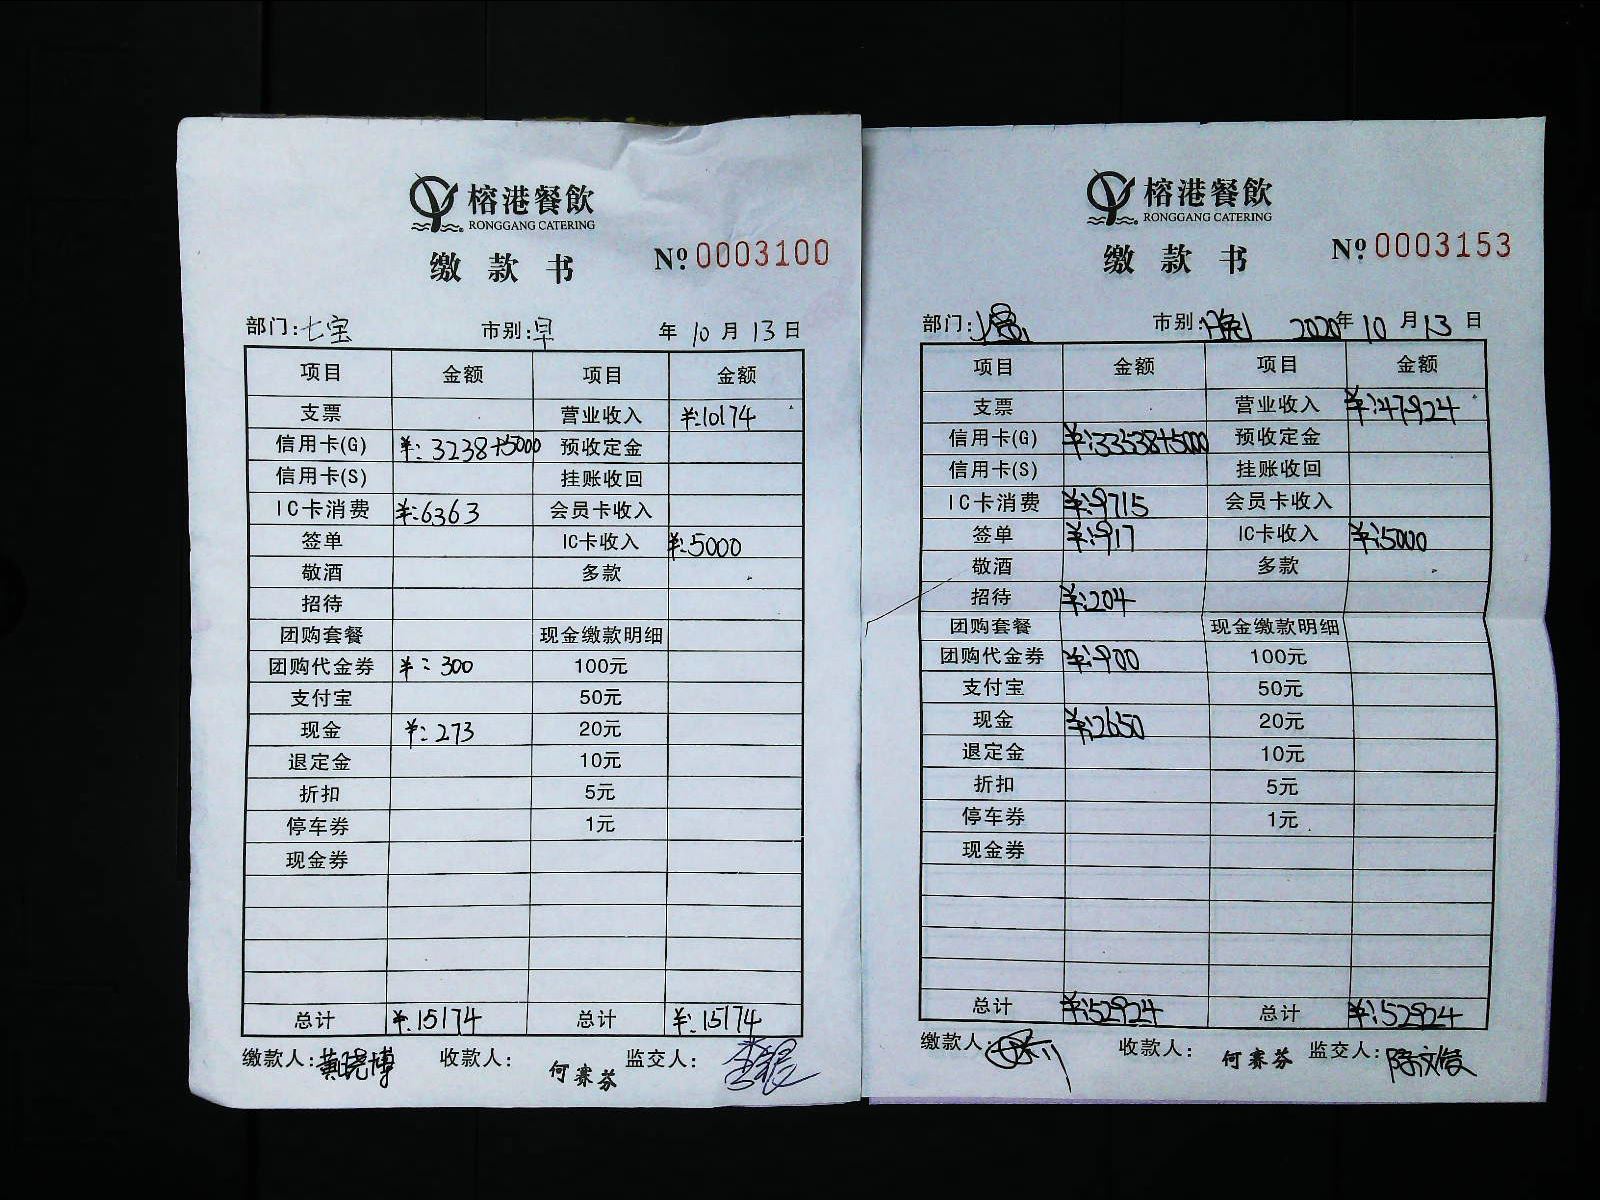 榕港餐飲
RONGGANG CATERING
缴款书
Nº 0003100
部门:七宝 市别:早 年 10 月 13 日
项目 金额 项目 金额
支票 营业收入 ¥:10174
信用卡(G) ¥:3238+5000 预收定金
信用卡(S) 挂账收回
IC卡消费 ¥:6363 会员卡收入
签单 IC卡收入 ¥:5000
敬酒 多款
招待
团购套餐 现金缴款明细
团购代金券 ¥:300 100元
支付宝 50元
现金 ¥:273 20元
退定金 10元
折扣 5元
停车券 1元
现金券
总计 ¥:15174 总计 ¥:15174
缴款人:黄晓博 收款人: 何赛芬 监交人:
榕港餐飲
RONGGANG CATERING
缴款书
Nº 0003153
部门: 市别: 2020年 10 月 13 日
项目 金额 项目 金额
支票 营业收入 ¥:47924
信用卡(G) ¥:33538+5000 预收定金
信用卡(S) 挂账收回
IC卡消费 ¥:9715 会员卡收入
签单 ¥:917 IC卡收入 ¥:5000
敬酒 多款
招待 ¥:204
团购套餐 现金缴款明细
团购代金券 ¥:900 100元
支付宝 50元
现金 ¥:2650 20元
退定金 10元
折扣 5元
停车券 1元
现金券
总计 ¥:52924 总计 ¥:52924
缴款人: 收款人: 何赛芬 监交人:陈文俊